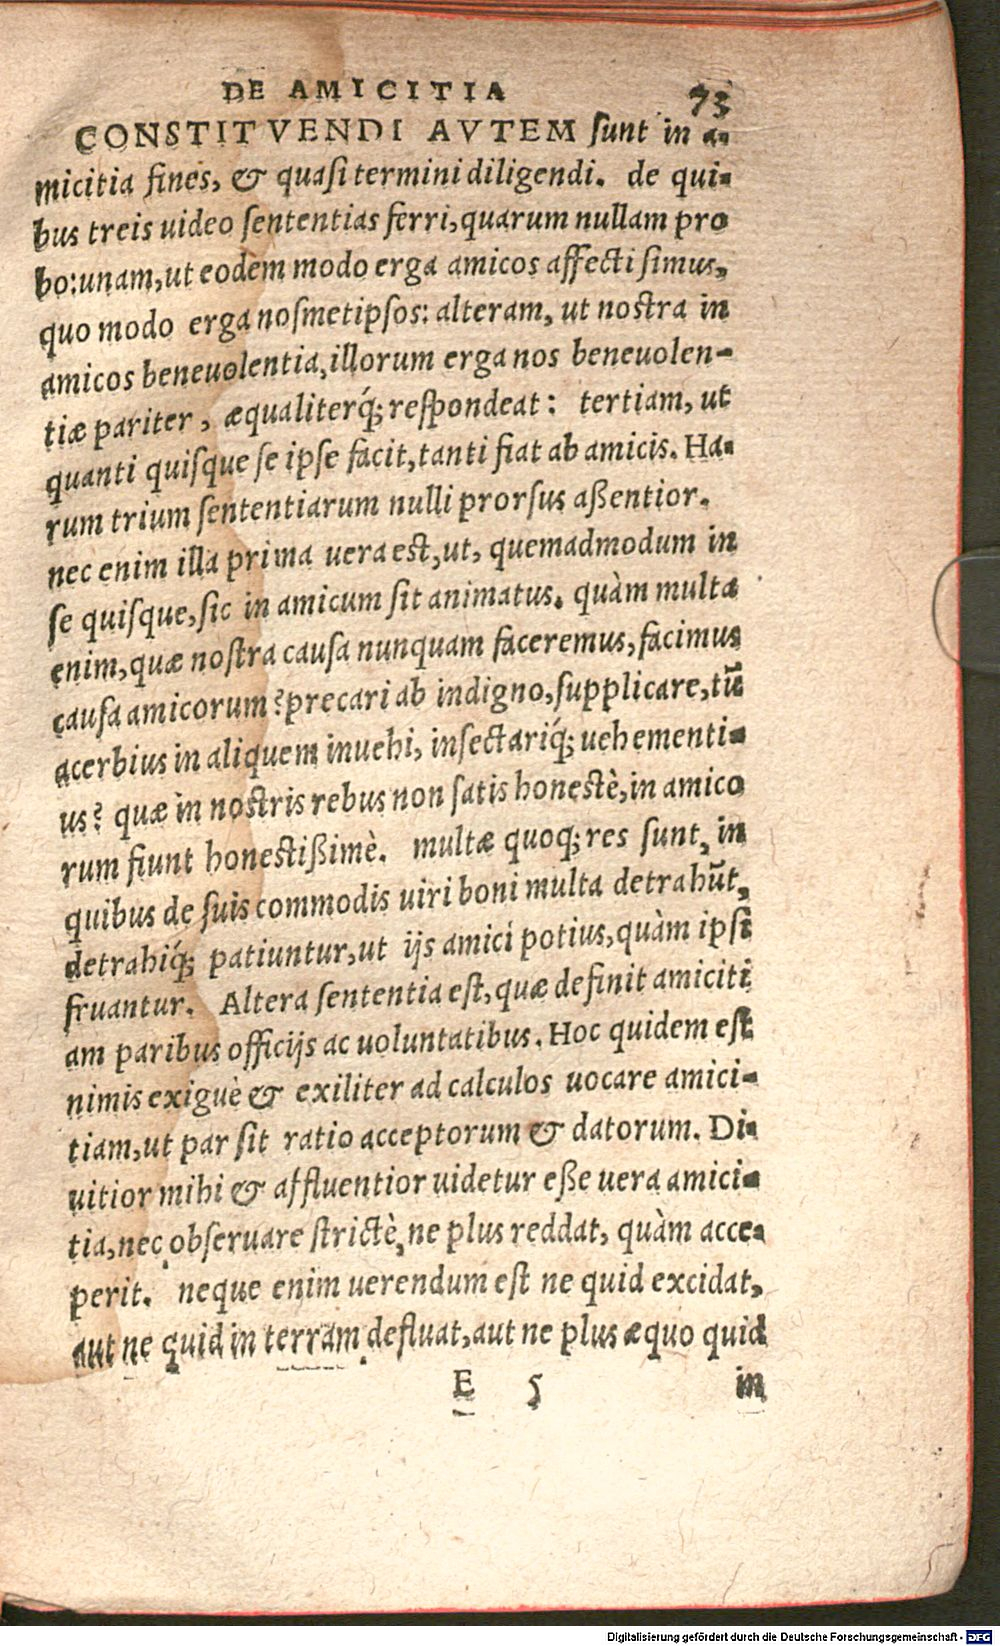 DE AMICITIA 73
CONSTITVENDI AVTEM sunt in a-
micitia fines, & quasi termini diligendi. de qui-
bus treis uideo sententias ferri, quarum nullam pro
bo: unam, ut eodem modo erga amicos affecti simus,
quo modo erga nosmetipsos: alteram, ut nostra in
amicos beneuolentia, illorum erga nos beneuolen-
tiæ pariter, æqualiterq́; respondeat: tertiam, ut
quanti quisque se ipse facit, tanti fiat ab amicis. Ha-
rum trium sententiarum nulli prorsus aßentior.
nec enim illa prima uera est, ut, quemadmodum in
se quisque, sic in amicum sit animatus. quàm multa
enim, quæ nostra causa nunquam faceremus, facimus
causa amicorum? precari ab indigno, supplicare, tū
acerbius in aliquem inuehi, insectariq́; uehementi-
us? quæ in nostris rebus non satis honestè, in amico
rum fiunt honestißimè. multæ quoq; res sunt, in
quibus de suis commodis uiri boni multa detrahūt,
detrahiq́; patiuntur, ut ijs amici potius, quàm ipsi
fruantur. Altera sententia est, quæ definit amiciti
am paribus officijs ac uoluntatibus. Hoc quidem est
nimis exiguè & exiliter ad calculos uocare amici-
tiam, ut par sit ratio acceptorum & datorum. Di-
uitior mihi & affluentior uidetur eße uera amici-
tia, nec obseruare strictè, ne plus reddat, quàm acce-
perit. neque enim uerendum est ne quid excidat,
aut ne quid in terram defluat, aut ne plus æquo quid
E 5 in
Digitalisierung gefördert durch die Deutsche Forschungsgemeinschaft - DFG